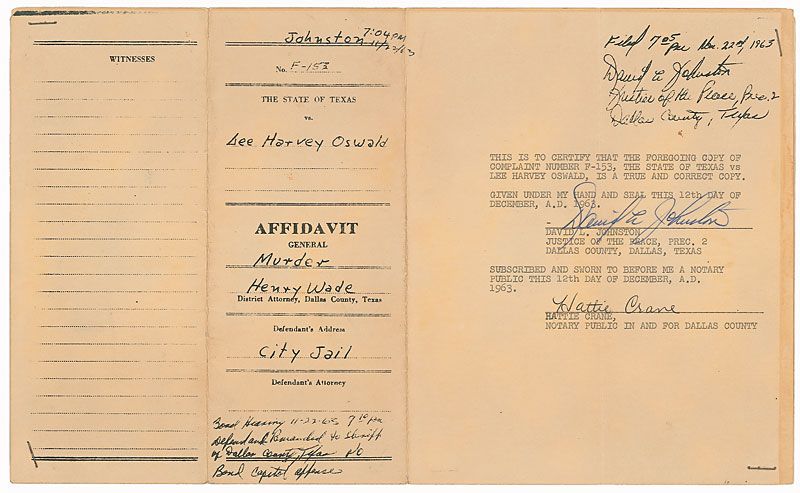 WITNESSES
Johnston 7:04 PM
11/22/63
No. F-153
THE STATE OF TEXAS
vs.
Lee Harvey Oswald
AFFIDAVIT
GENERAL
Murder
Henry Wade
District Attorney, Dallas County, Texas
Defendant's Address
City Jail
Defendant's Attorney
Bond Hearing 11-22-63 7 10 pm
Defendant Remanded to Sheriff
of Dallas County, Texas no
Bond Capitol offense
Filed 7 05
pm Nov. 22nd, 1963
David L Johnston
Justice of the Peace, Prec. 2
Dallas County, Texas
THIS IS TO CERTIFY THAT THE FOREGOING COPY OF
COMPLAINT NUMBER F-153, THE STATE OF TEXAS vs
LEE HARVEY OSWALD, IS A TRUE AND CORRECT COPY.
GIVEN UNDER MY HAND AND SEAL THIS 12th DAY OF
DECEMBER, A.D. 1963.
David L Johnston
DAVID L. JOHNSTON
JUSTICE OF THE PEACE, PREC. 2
DALLAS COUNTY, DALLAS, TEXAS
SUBSCRIBED AND SWORN TO BEFORE ME A NOTARY
PUBLIC THIS 12th DAY OF DECEMBER, A.D.
1963.
Hattie Crane
HATTIE CRANE,
NOTARY PUBLIC IN AND FOR DALLAS COUNTY